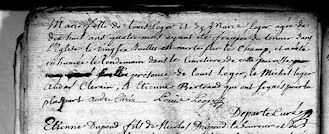 Marie fille de Louis Leger et de Marie Leger agée de
dix huit ans quatre mois ayant été frappée de tonner dans
l'Eglise le vingtes Juillet est morte sur le Champ, et a été
inhumée le lendemain dans le Cimetiere de cette paroisse
presence de Louis Leger, de Michel leger
de Clervin, & Etienne Bertrand qui ont signés pour la
plus part Louis Leger
Departe Curé
Etienne Dupond fils de Nicolas Dupond Laboureur et de